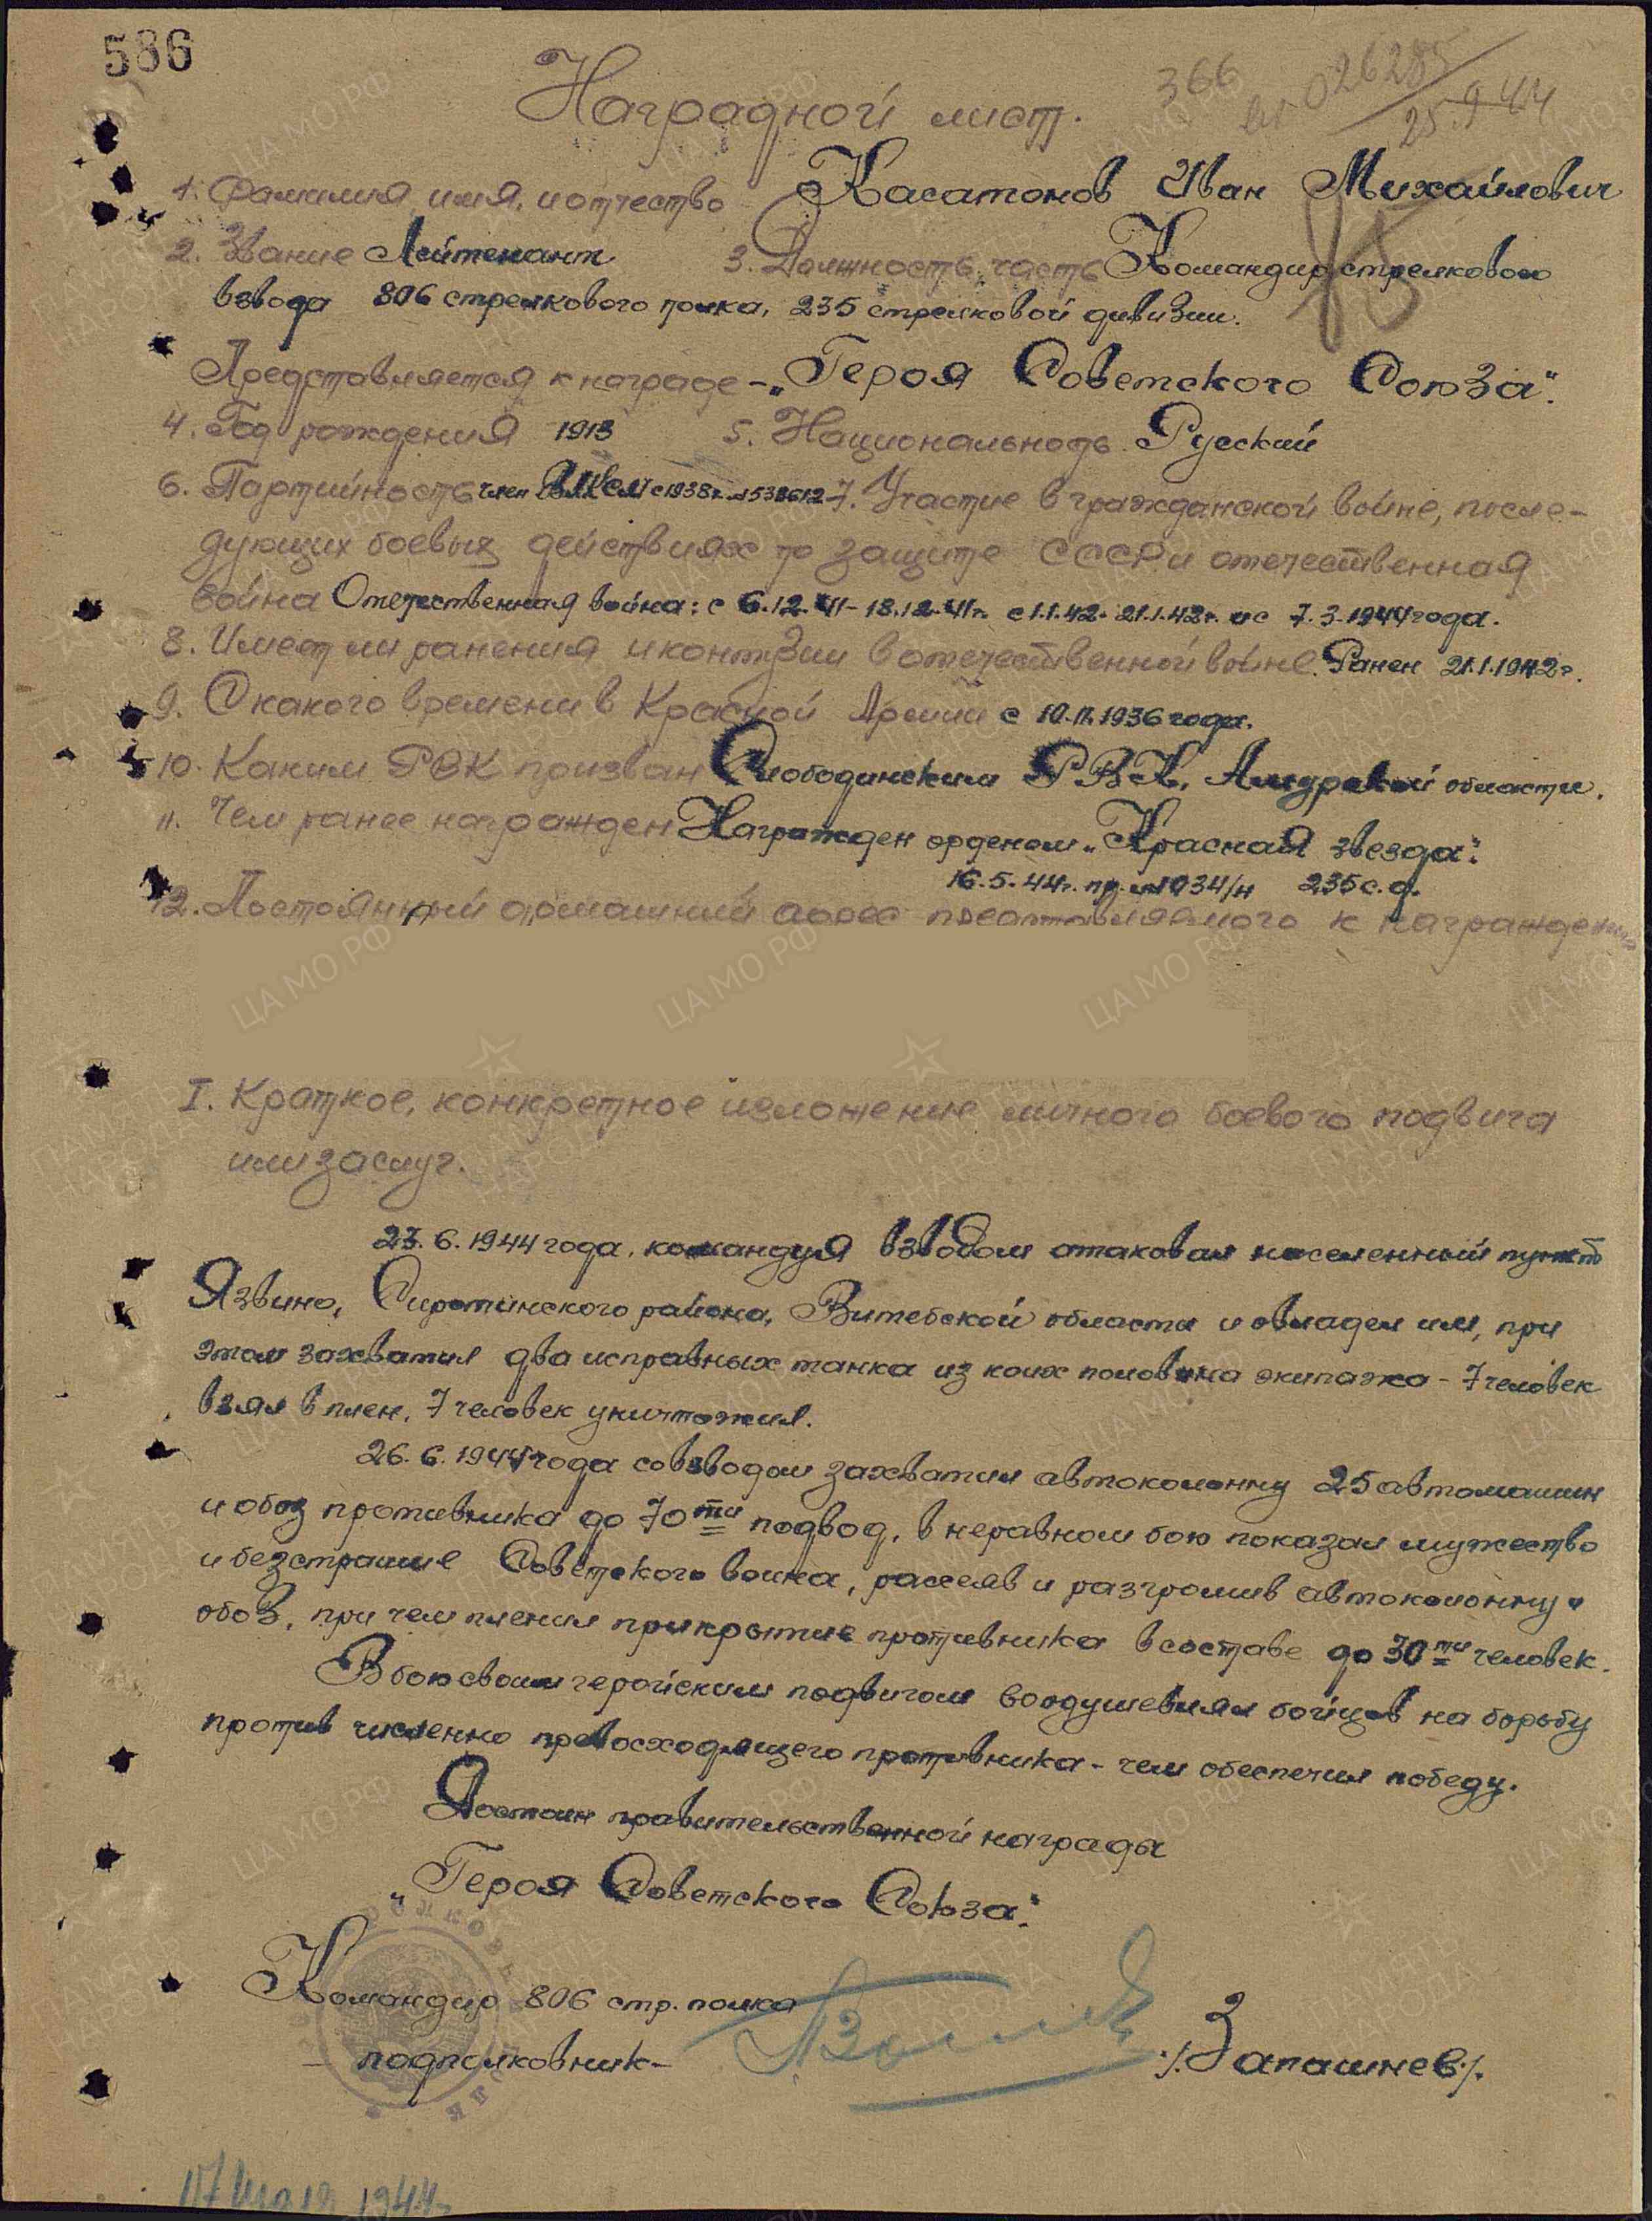 586
Наградной лист.
366
026285
25.9.44
1. Фамилия, имя, и отчество Касатонов Иван Михайлович
2. Звание Лейтенант 3. Должность, часть Командир стрелкового
взвода 806 стрелкового полка, 235 стрелковой дивизии.
Представляется к награде - „Героя Советского Союза".
4. Год рождения 1913 5. Национальность Русский
6. Партийность член ВЛКСМ с 1938г. 7. Участие в гражданской войне, после-
дующих боевых действиях по защите СССР и отечественная
война Отечественная война: с 6.12.41 - 18.12.41г. с 1.1.42 - 21.1.42г. и с 7.3.1944 года.
8. Имеет ли ранения и контузии в отечественной войне. Ранен 21.1.1942г.
9. С какого времени в Красной Армии с 10.11.1936 года.
10. Каким РВК призван Слободинским РВК, Амурской области.
11. Чем ранее награжден Награжден орденом „Красная звезда".
16.5.44г. пр. №034/н 235 с.д.
12. Постоянный домашний адрес представляемого к награждению
I. Краткое, конкретное изложение личного боевого подвига
или заслуг.
23.6.1944 года, командуя взводом атаковал населенный пункт
Язвино, Сиротинского района, Витебской области и овладел им, при
этом захватил два исправных танка из коих половина экипажа - 7 человек
взял в плен, 7 человек уничтожил.
26.6.1944 года со взводом захватил автоколонну 25 автомашин
и обоз противника до 70ти подвод, в неравном бою показал мужество
и безстрашие Советского воина, рассеяв и разгромив автоколонну и
обоз, при чем пленил прикрытие противника в составе до 30ти человек.
В бою своим геройским подвигом воодушевлял бойцов на борьбу
против численно превосходящего противника - чем обеспечил победу.
Достоин правительственной награды
„Героя Советского Союза".
Командир 806 стр. полка
- подполковник - /Запашнев/.
17 июля 1944г.